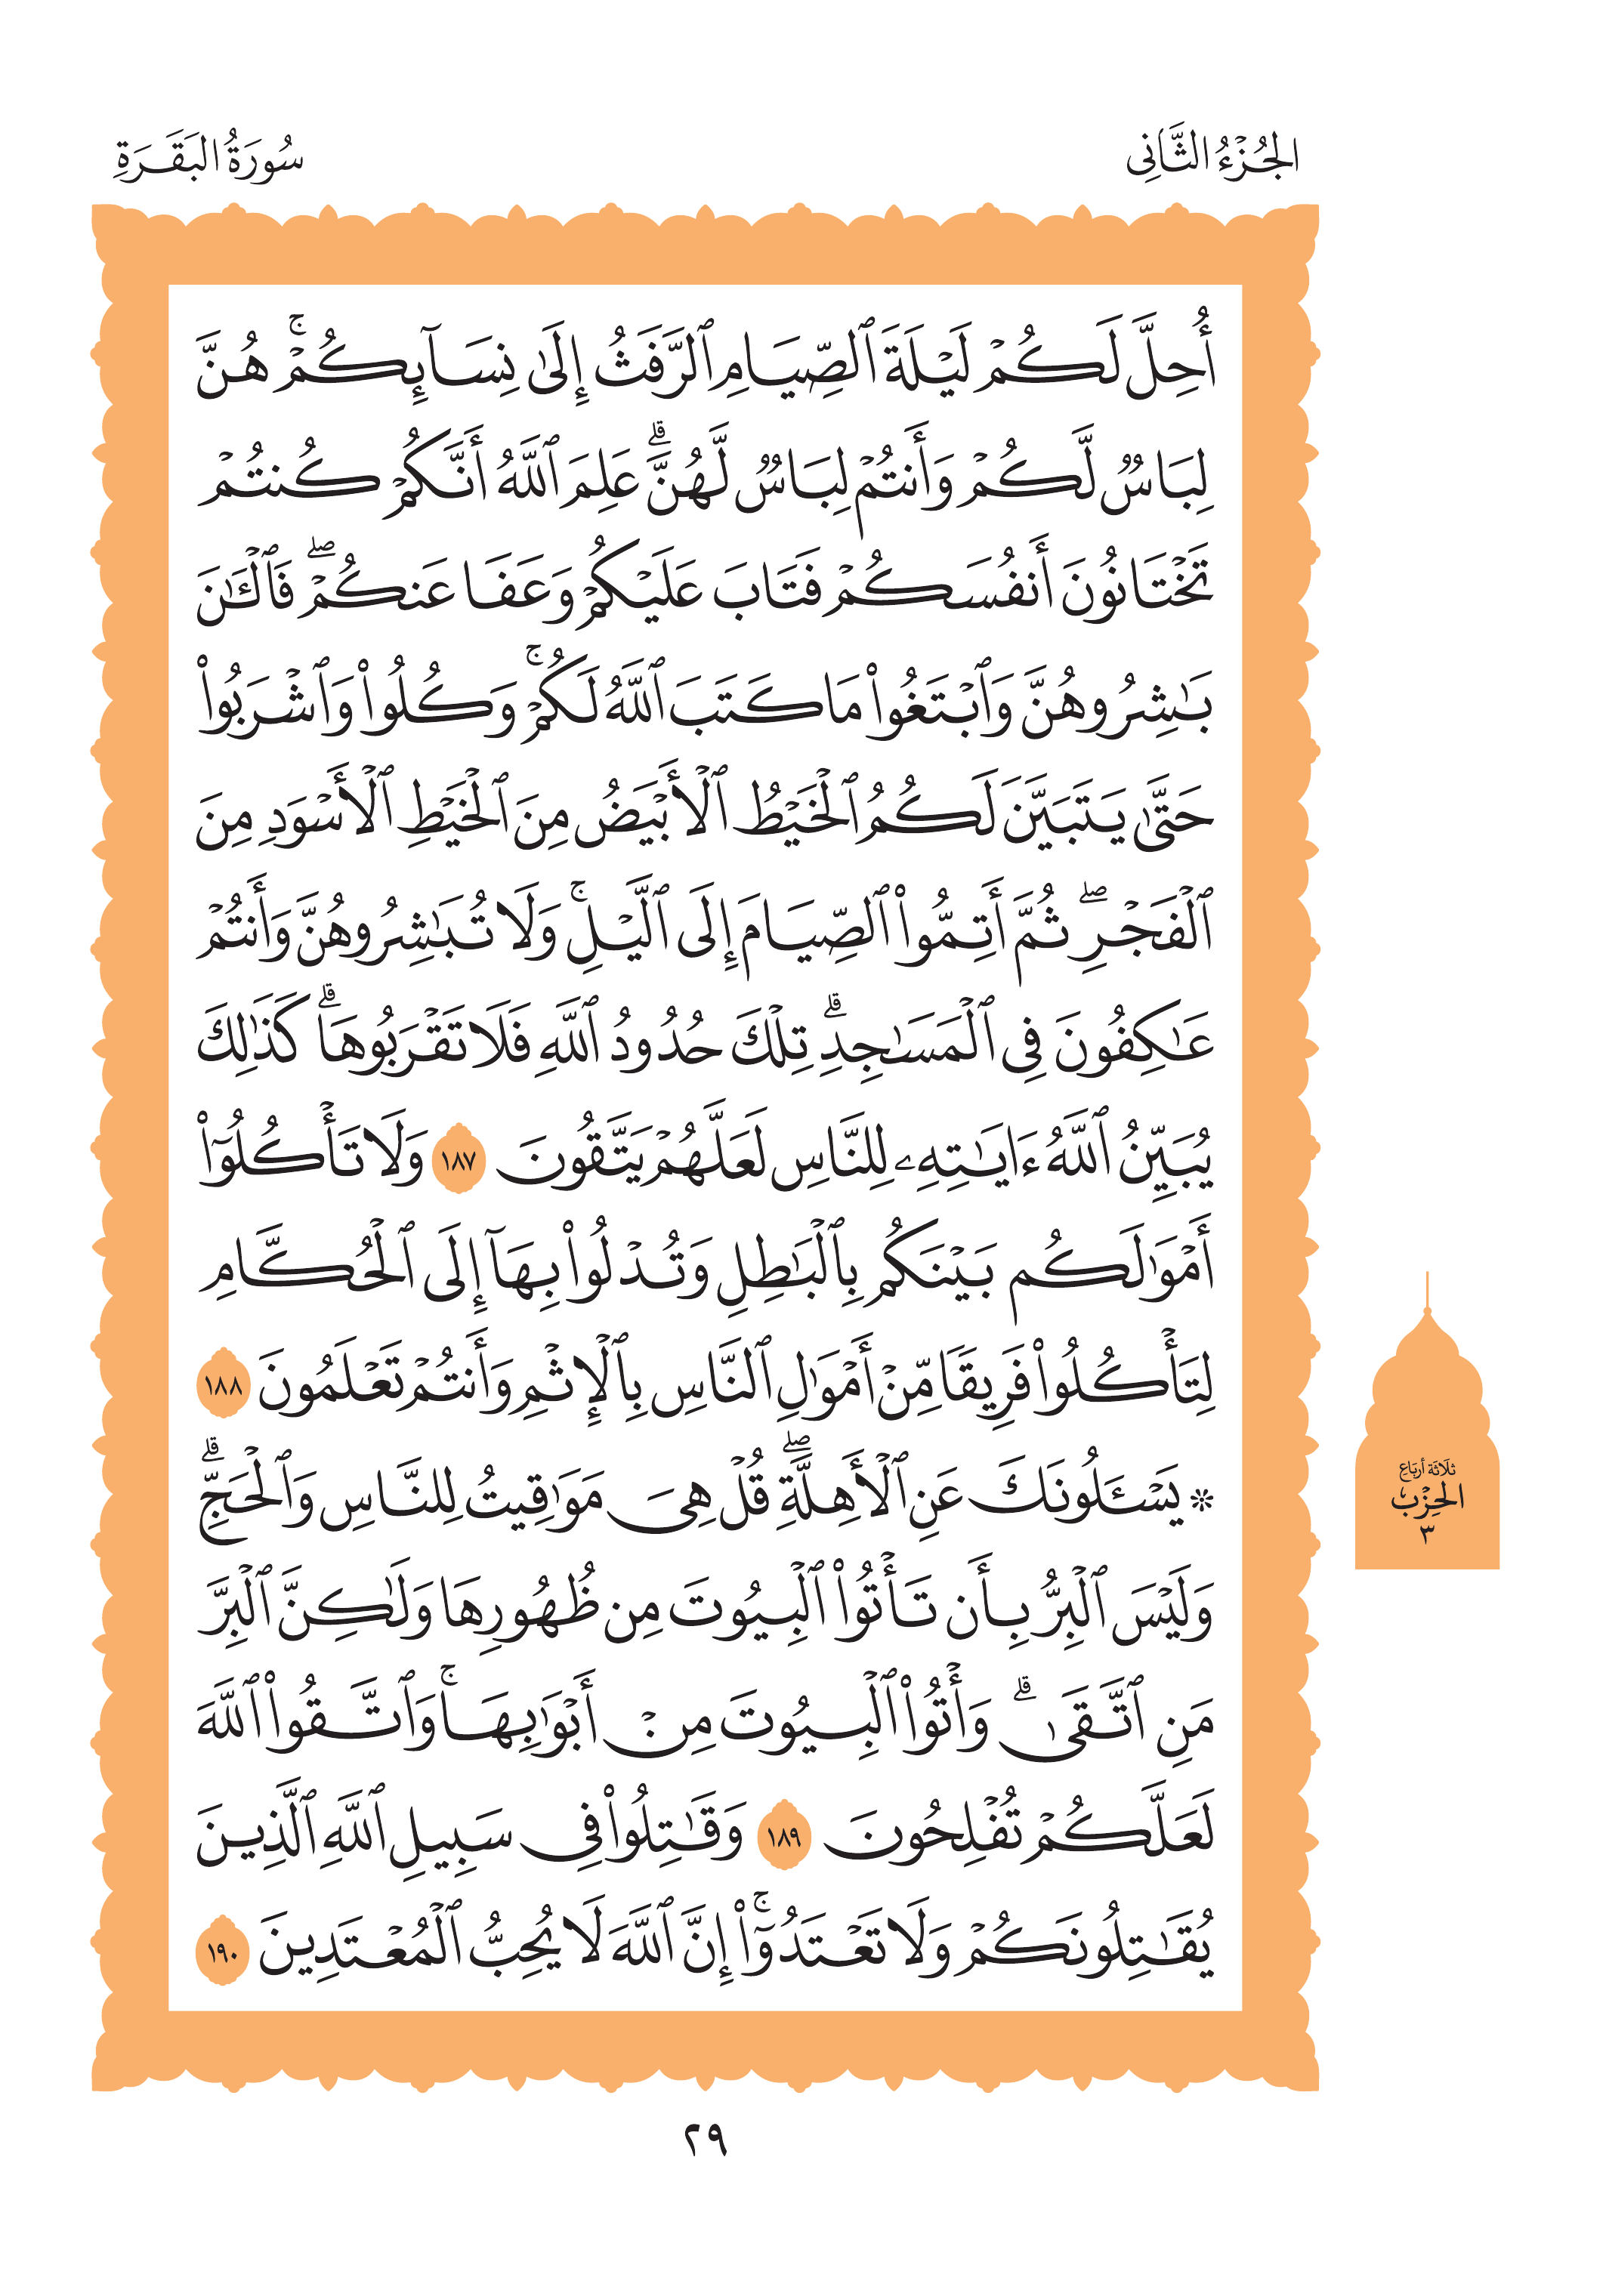 الجُزْءُ الثَّانِي
سُورَةُ البَقَرَةِ
أُحِلَّ لَكُمۡ لَيۡلَةَ ٱلصِّيَامِ ٱلرَّفَثُ إِلَىٰ نِسَآئِكُمۡۚ هُنَّ
لِبَاسٞ لَّكُمۡ وَأَنتُمۡ لِبَاسٞ لَّهُنَّۗ عَلِمَ ٱللَّهُ أَنَّكُمۡ كُنتُمۡ
تَخۡتَانُونَ أَنفُسَكُمۡ فَتَابَ عَلَيۡكُمۡ وَعَفَا عَنكُمۡۖ فَٱلۡـَٰٔنَ
بَٰشِرُوهُنَّ وَٱبۡتَغُواْ مَا كَتَبَ ٱللَّهُ لَكُمۡۚ وَكُلُواْ وَٱشۡرَبُواْ
حَتَّىٰ يَتَبَيَّنَ لَكُمُ ٱلۡخَيۡطُ ٱلۡأَبۡيَضُ مِنَ ٱلۡخَيۡطِ ٱلۡأَسۡوَدِ مِنَ
ٱلۡفَجۡرِۖ ثُمَّ أَتِمُّواْ ٱلصِّيَامَ إِلَى ٱلَّيۡلِۚ وَلَا تُبَٰشِرُوهُنَّ وَأَنتُمۡ
عَٰكِفُونَ فِي ٱلۡمَسَٰجِدِۗ تِلۡكَ حُدُودُ ٱللَّهِ فَلَا تَقۡرَبُوهَاۗ كَذَٰلِكَ
يُبَيِّنُ ٱللَّهُ ءَايَٰتِهِۦ لِلنَّاسِ لَعَلَّهُمۡ يَتَّقُونَ ١٨٧ وَلَا تَأۡكُلُوٓاْ
أَمۡوَٰلَكُم بَيۡنَكُم بِٱلۡبَٰطِلِ وَتُدۡلُواْ بِهَآ إِلَى ٱلۡحُكَّامِ
لِتَأۡكُلُواْ فَرِيقٗا مِّنۡ أَمۡوَٰلِ ٱلنَّاسِ بِٱلۡإِثۡمِ وَأَنتُمۡ تَعۡلَمُونَ ١٨٨
۞ يَسۡـَٔلُونَكَ عَنِ ٱلۡأَهِلَّةِۖ قُلۡ هِيَ مَوَٰقِيتُ لِلنَّاسِ وَٱلۡحَجِّۗ
وَلَيۡسَ ٱلۡبِرُّ بِأَن تَأۡتُواْ ٱلۡبُيُوتَ مِن ظُهُورِهَا وَلَٰكِنَّ ٱلۡبِرَّ
مَنِ ٱتَّقَىٰۗ وَأۡتُواْ ٱلۡبُيُوتَ مِنۡ أَبۡوَٰبِهَاۚ وَٱتَّقُواْ ٱللَّهَ
لَعَلَّكُمۡ تُفۡلِحُونَ ١٨٩ وَقَٰتِلُواْ فِي سَبِيلِ ٱللَّهِ ٱلَّذِينَ
يُقَٰتِلُونَكُمۡ وَلَا تَعۡتَدُوٓاْۚ إِنَّ ٱللَّهَ لَا يُحِبُّ ٱلۡمُعۡتَدِينَ ١٩٠
ثلَاثَة أرَبَاعِ
الحِزْب
٣
٢٩